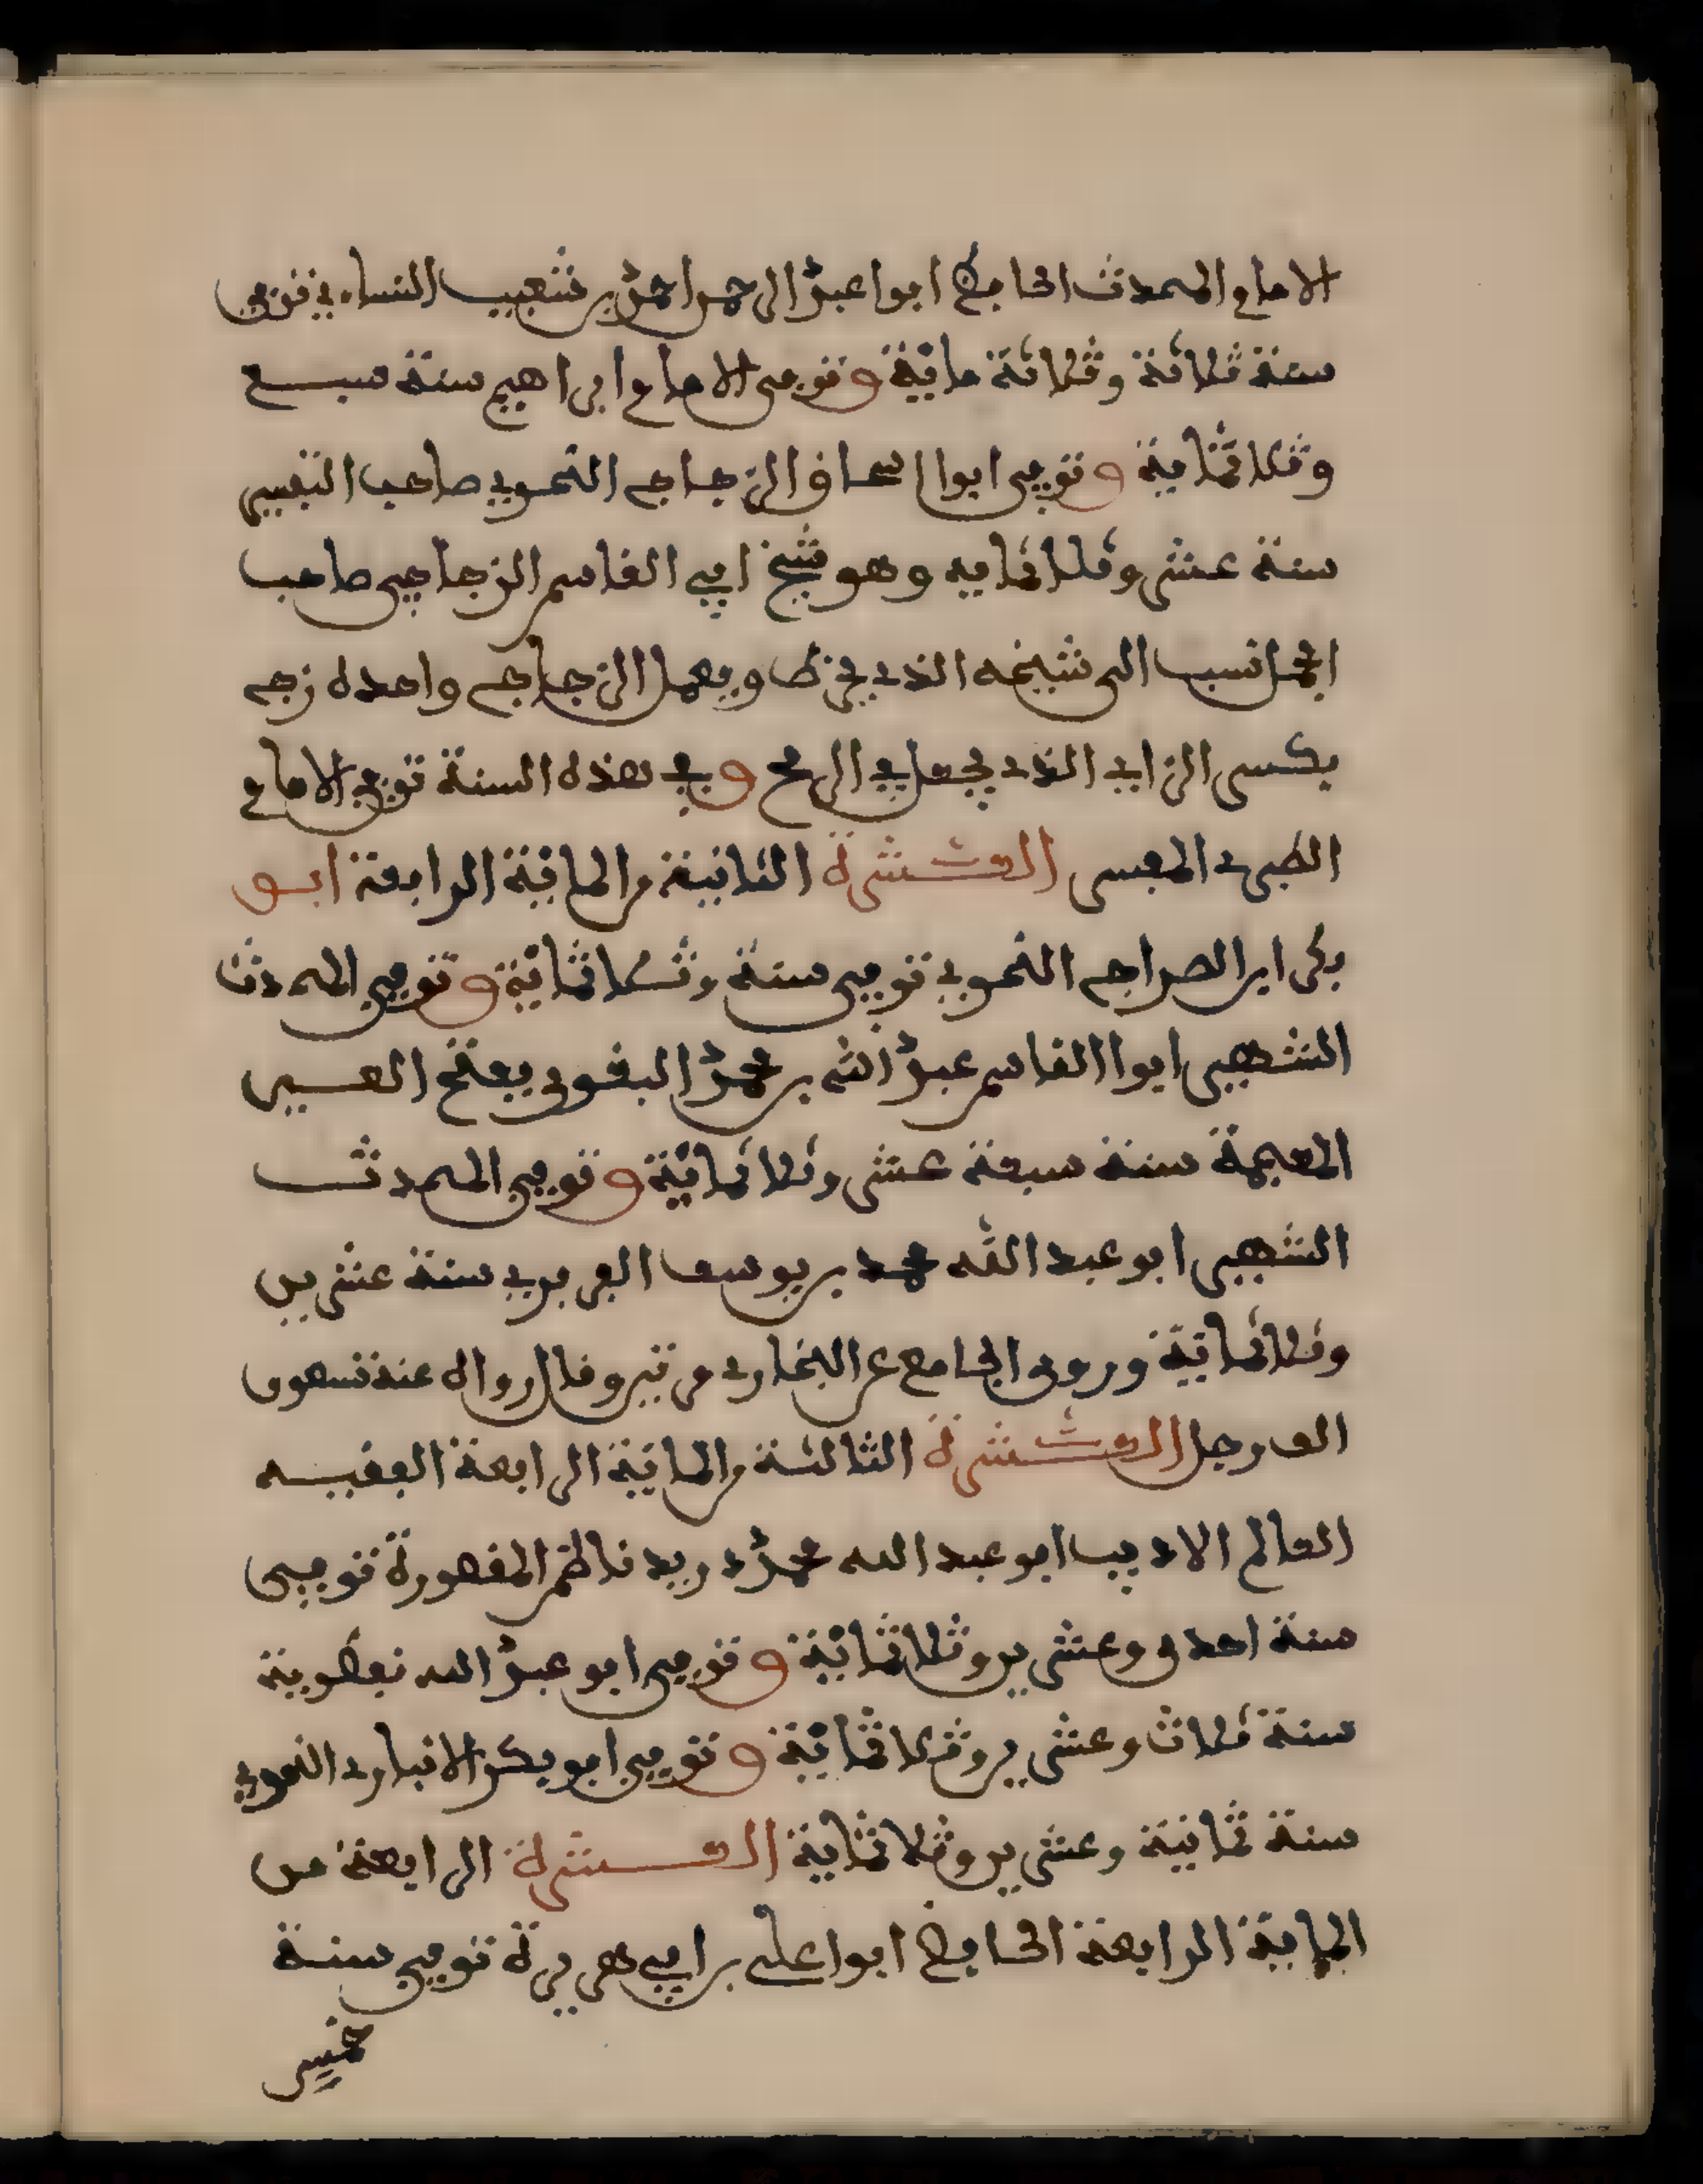 الامام المحدث الحافظ ابوا عبد الرحمن احمد بن شعيب النساءي توفي
سنة ثلاثة وثلاثة ماية وتوفي الامام ابراهيم سنة سبع
وثلاثماية وتوفي ابوا اسحاق الزجاج النحوي صاحب التفسير
سنة عشر وثلاثمايه وهو شيخ ابي القاسم الزجاجي صاحب
الجمل نسب الى شيخه الذي ويعمل الزجاج واحده زج
بكسر الزاي الذي يجعل في الرمح وفي هذه السنة توفي الامام
الطبري المفسر العشرة الثانية من الماية الرابعة ابو
بكر ابن الصراج النحوي توفي سنة وثلاثماية وتوفي المحدث
الشهير ابوا القاسم عبد الله بن محمد البغوي بفتح الغين
المعجمة سنة سبعة عشر وثلاثماية وتوفي المحدث
الشهير ابو عبد الله محمد بن يوسف الفربري سنة عشرين
وثلاثماية وروى الجامع عن البخاري مرتين وقال رواه عنه تسعون
الف رجل العشرة الثالثة من الماية الرابعة الفقيه
العالم الاديب ابو عبد الله محمد دريد ناظم المقصورة توفي
سنة احدى وعشرين وثلاثماية وتوفي ابو عبد الله نفطوية
سنة ثلاث وعشرين وثلاثماية وتوفي ابو بكر الانباري النحوي
سنة ثمانية وعشرين وثلاثماية العشرة الرابعة من
الماية الرابعة الحافظ ابوا علي بن ابي هريرة توفي سنة
خمس